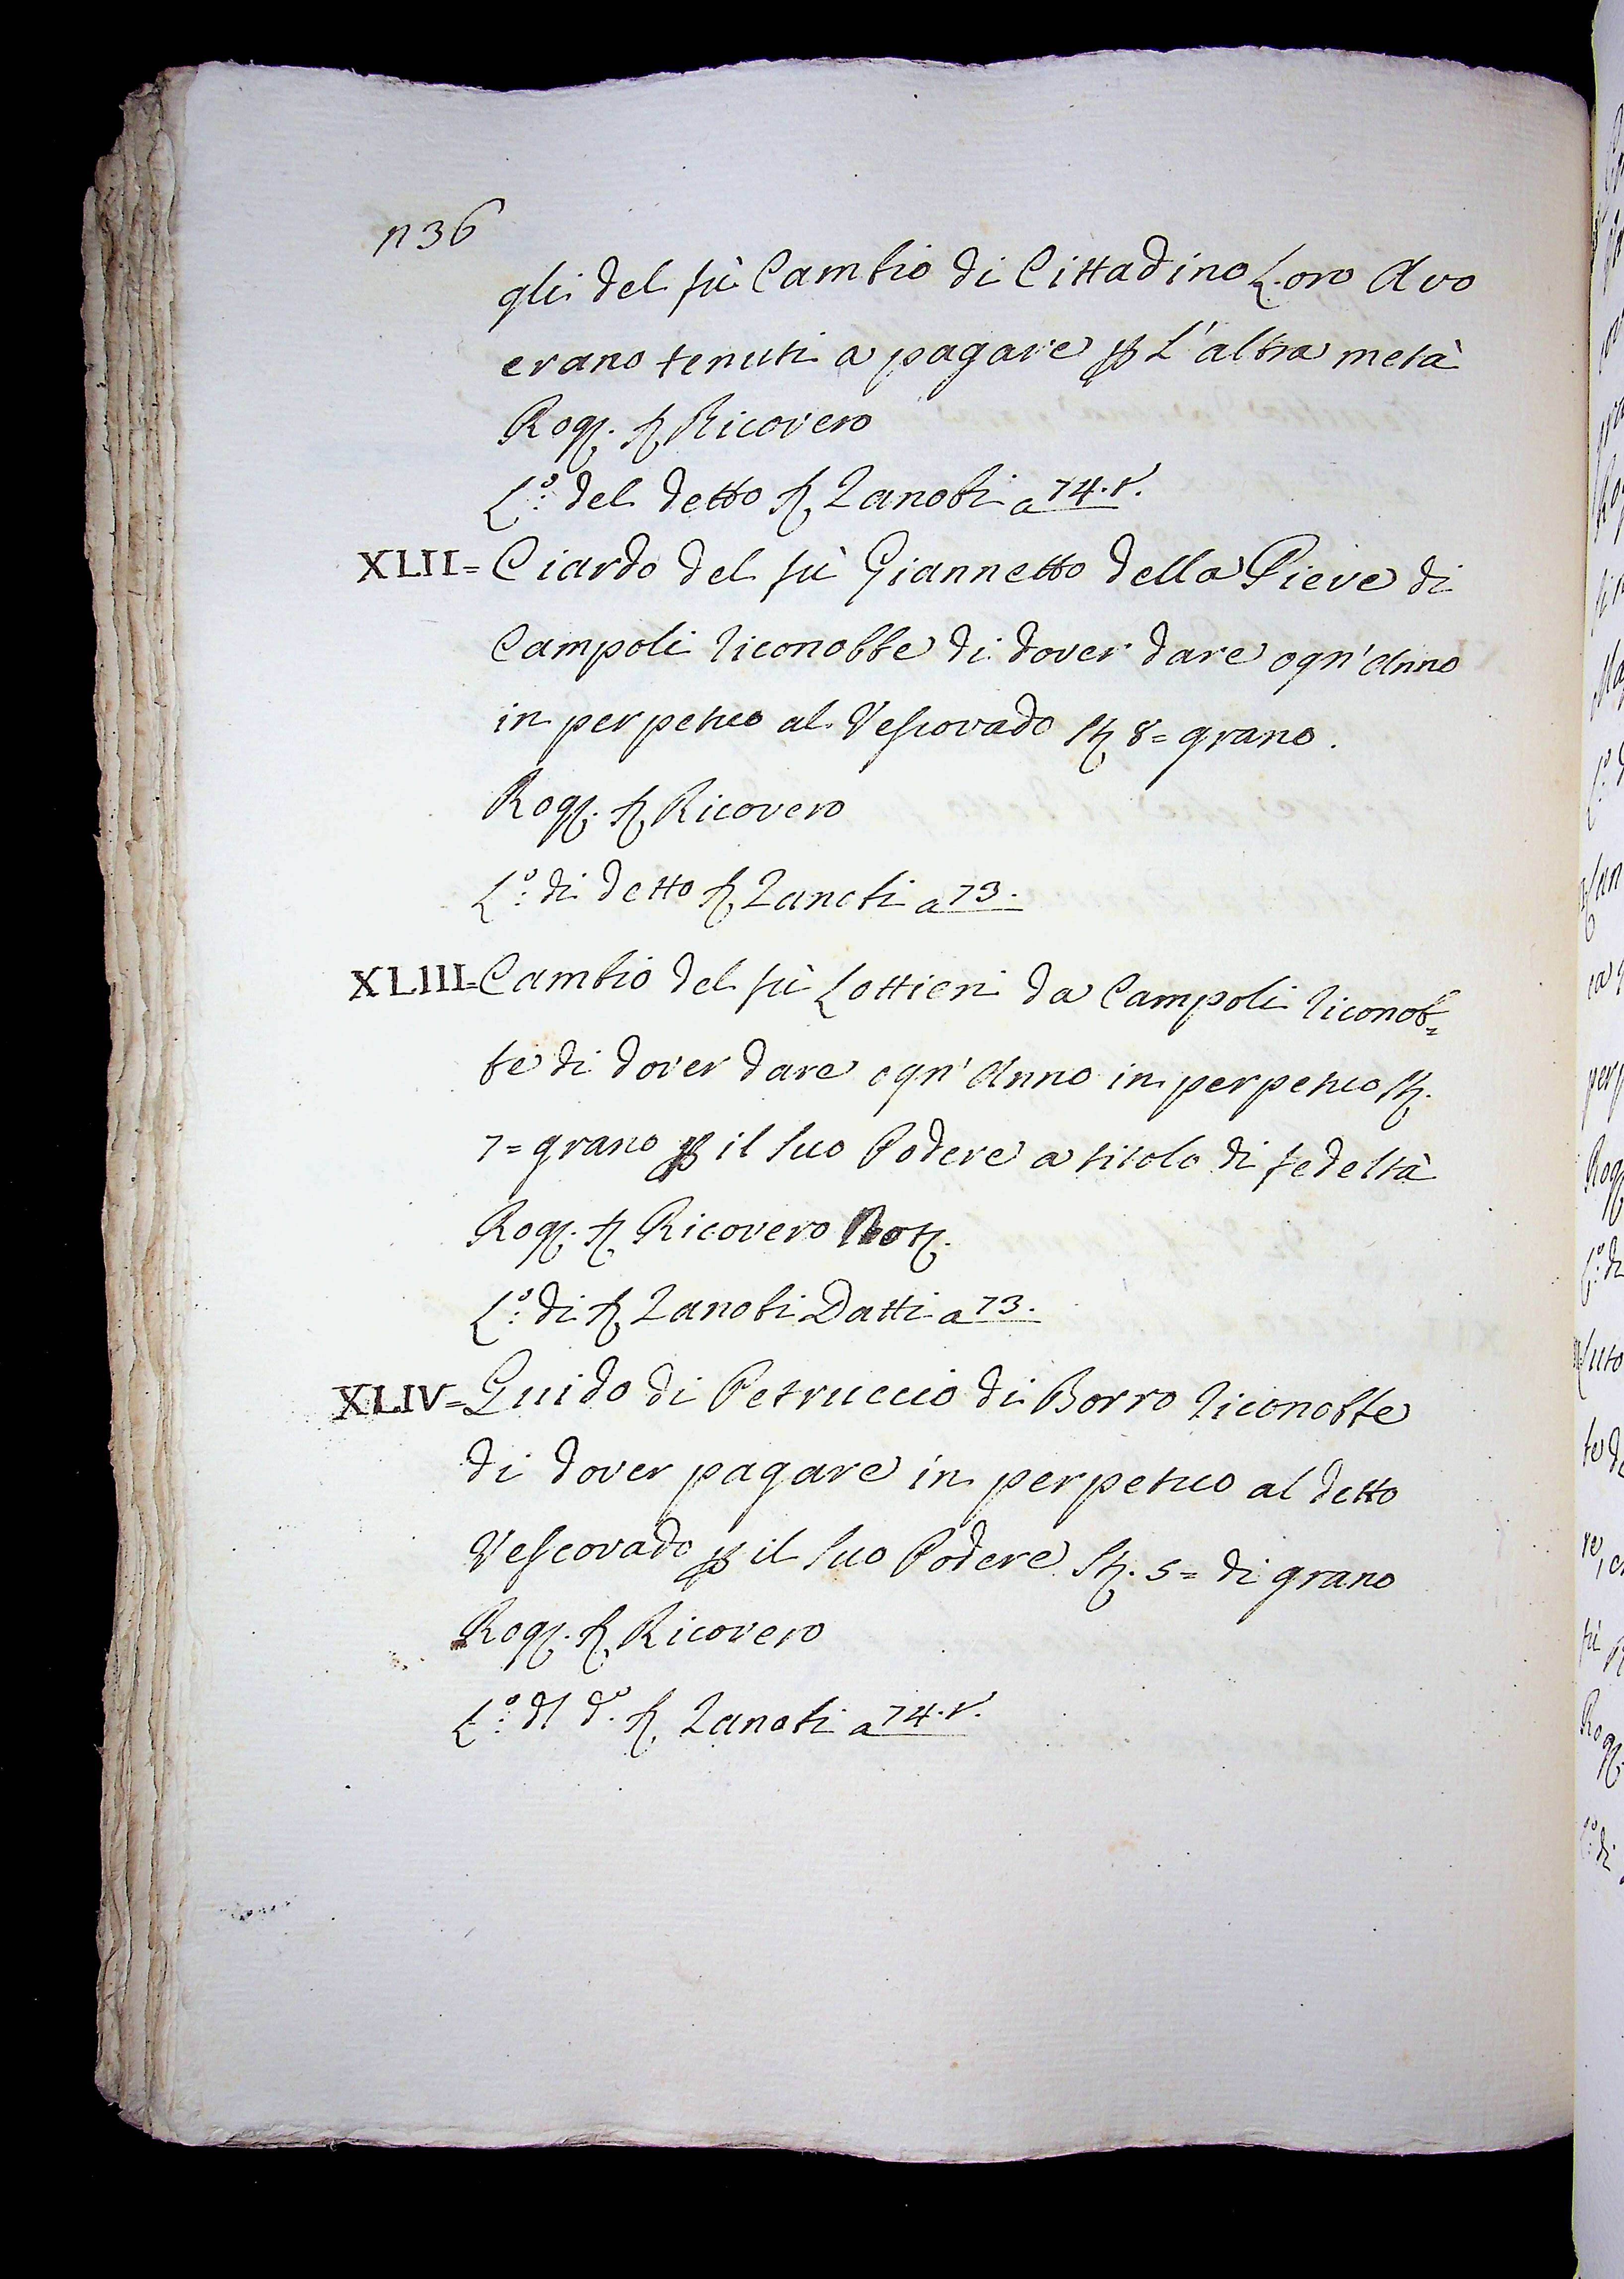 1136
gli del fù Cambio di Cittadino Loro Avo
erano tenuti a pagare p L'altra metà
Rog. S. Ricovero
L.º del detto S. Zanobi a 74.t.
XLII= Ciardo del fù Giannetto della Pieve di
Campoli riconobbe di dover dare ogn'Anno
in perpetuo al Vescovado St. 8= grano.
Rog. S. Ricovero
L.º di detto S. Zanobi a 73.
XLIII= Cambio del fù Lottieri da Campoli riconob=
be di dover dare ogn'Anno in perpetuo St.
7= grano p il suo Podere a titolo di fedeltà
Rog. S. Ricovero Not.
L.º di S. Zanobi Datti a 73.
XLIV= Guido di Petruccio di Borro riconobbe
di dover pagare in perpetuo al detto
Vescovado p il suo Podere St. 5= di grano
Rog. S. Ricovero
L.º dl d.º S. Zanobi a 74.t.